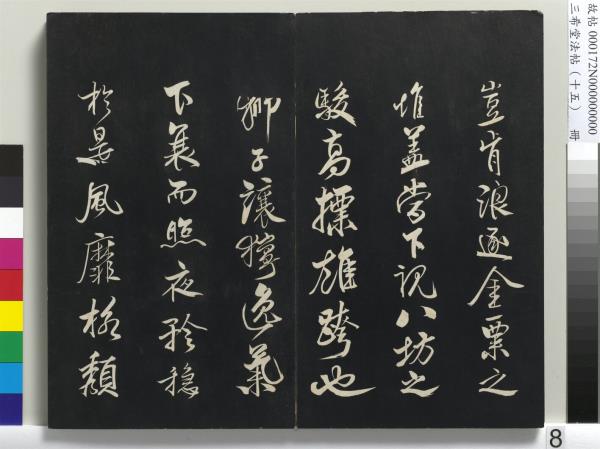 豈肯浪逐金粟之
堆盖當下視八坊之
駿高標雄跨也
獅子讓獰逸氣
下衰而照夜矜穩
於是風靡格頹
故帖 000172N000000000
三希堂法帖(十五) 冊
8